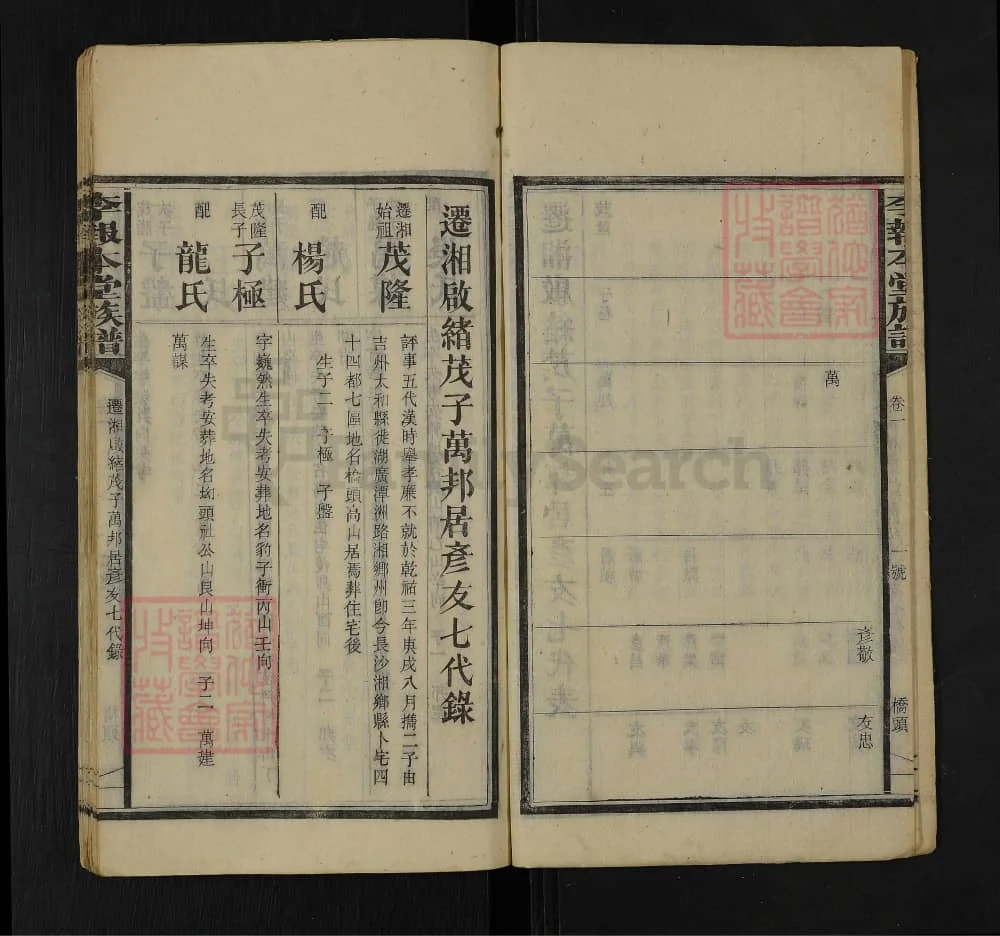 李報本堂族譜
卷一
一號
橋頭
萬
逢敬
友忠
遷湘啟緒茂子萬邦居彥友七代錄
遷湘始祖 茂隆
評事五代漢時舉孝廉不就於乾祐三年庚戌八月攜二子由
吉州太和縣徙湖廣潭洲路湘鄉州卽今長沙湘鄉縣卜宅四
十四都七區地名橋頭高山居焉葬住宅後
配 楊氏
生子二 子極 子盤
茂隆長子 子極
字巍然生卒失考安葬地名豹子衝丙山壬向
配 龍氏
生卒失考安葬地名坳頭社公山艮山坤向 子二 萬建
萬謀
李報本堂族譜
遷湘啟緒茂子萬邦居彥友七代錄
FamilySearch